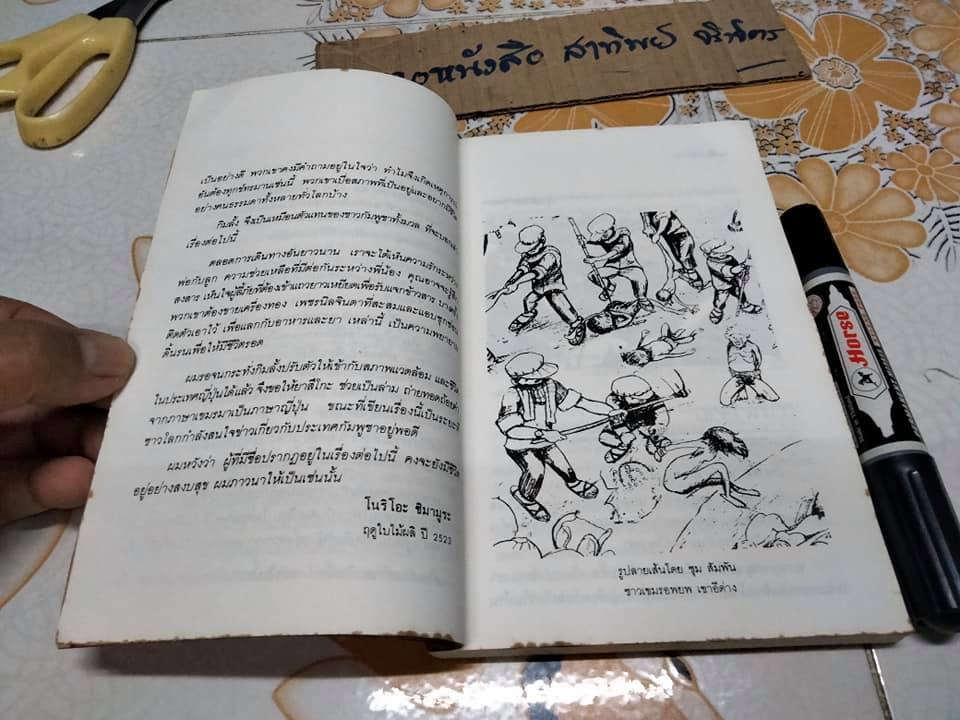 หนังสือ สาทิพย์
เป็นอย่างดี พวกเขาคงมีคำถามอยู่ในใจว่า ทำไมจึงเกิดเหตุการณ์
อันต้องทุกข์ทรมานเช่นนี้ พวกเขาเบื่อสภาพที่เป็นอยู่และอยากมีชีวิต
อย่างคนธรรมดาทั้งหลายทั่วโลกบ้าง
กิมลั้ง จึงเป็นเหมือนตัวแทนของชาวกัมพูชาทั้งมวล ที่จะบอกเล่า
เรื่องต่อไปนี้
ตลอดการเดินทางอันยาวนาน เราจะได้เห็นความรักระหว่าง
พ่อกับลูก ความช่วยเหลือที่มีต่อกันระหว่างพี่น้อง คุณอาจจะรู้สึก
สงสาร เห็นใจผู้ลี้ภัยที่ต้องเข้าแถวยาวเหยียดเพื่อรับแจกข้าวสาร บางครั้ง
พวกเขาต้องขายเครื่องทอง เพชรนิลจินดาที่สะสมและแอบซุกซ่อน
ติดตัวเอาไว้ เพื่อแลกกับอาหารและยา เหล่านี้ เป็นความพยายาม
ดิ้นรนเพื่อให้มีชีวิตรอด
ผมรอจนกระทั่งกิมลั้งปรับตัวให้เข้ากับสภาพแวดล้อม และชีวิต
ในประเทศญี่ปุ่นได้แล้ว จึงขอให้ยาสึโกะ ช่วยเป็นล่าม ถ่ายทอดถ้อยคำ
จากภาษาเขมรมาเป็นภาษาญี่ปุ่น ขณะที่เขียนเรื่องนี้เป็นระยะที่
ชาวโลกกำลังสนใจข่าวเกี่ยวกับประเทศกัมพูชาอยู่พอดี
ผมหวังว่า ผู้ที่มีชื่อปรากฏอยู่ในเรื่องต่อไปนี้ คงจะยังมีชีวิต
อยู่อย่างสงบสุข ผมภาวนาให้เป็นเช่นนั้น
โนริโอะ ชิมามูระ
ฤดูใบไม้ผลิ ปี 2523
รูปลายเส้นโดย ชุม สัมพัน
ชาวเขมรอพยพ เขาอีด่าง
Horse